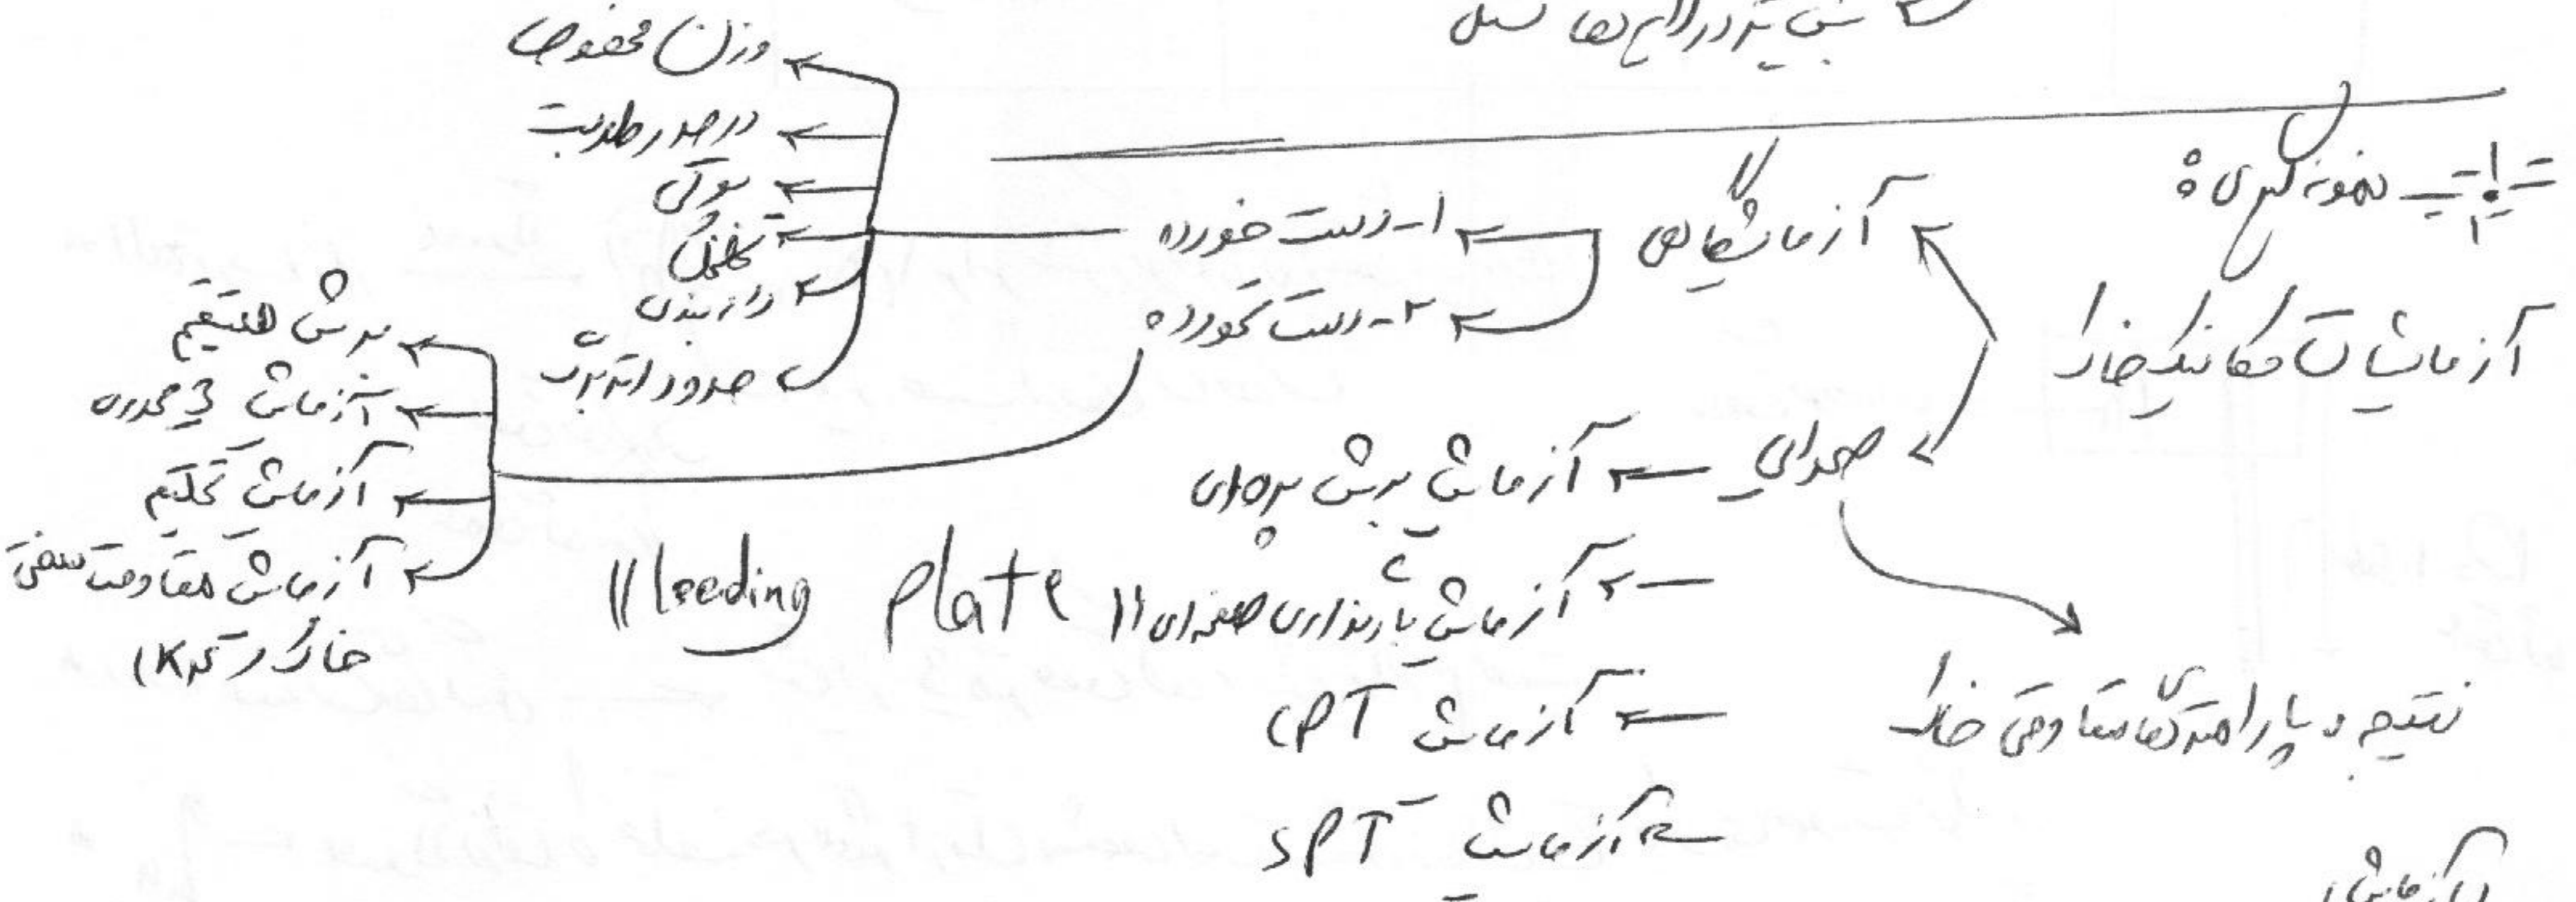 نمونه گیری :
آزمایشات مکانیک خاک
آزمایشگاهی
۱- دست خورده
وزن مخصوص
درصد رطوبت
پوکی
تخلخل
دانه بندی
حدود اتربرگ
۲- دست نخورده
برش مستقیم
آزمایش 3 محوره
آزمایش تحکیم
آزمایش مقاومت سنجی
خاک (تک K)
صحرایی
آزمایش برش پره ای
آزمایش بارگذاری صفحه ای (( Pleate leeding ))
آزمایش CPT
آزمایش SPT
نتیجه : پارامترهای مقاومتی خاک
آزمایش